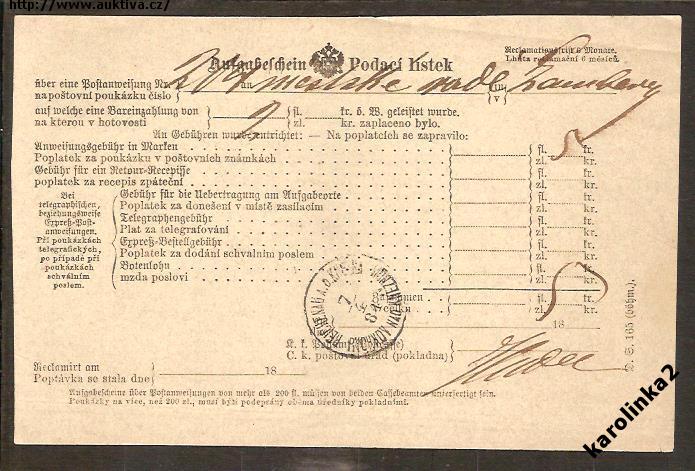 http://www.auktiva.cz/
Aufgabeschein Podací lístek
Reclamationsfrist 6 Monate.
Lhůta reclamační 6 měsíců.
über eine Postanweisung Nr. an in
na poštovní poukázku číslo v
auf welche eine Bareinzahlung von 9 fl. kr. ö. W. geleistet wurde.
na kterou v hotovosti zl. kr. zaplaceno bylo.
An Gebühren wurde entrichtet: — Na poplatcích se zapravilo:
Anweisungsgebühr in Marken fl. 5 kr.
Poplatek za poukázku v poštovních známkách zl. kr.
Gebühr für ein Retour-Recepisse fl. kr.
poplatek za recepis zpáteční zl. kr.
Bei telegraphischen, beziehungsweise Expreß-Postanweisungen.
Při poukázkách telegrafických, po případě při poukázkách schválním poslem.
Gebühr für die Uebertragung am Aufgabsorte fl. kr.
Poplatek za donešení v místě zasílacím zl. kr.
Telegraphengebühr fl. kr.
Plat za telegrafování zl. kr.
Expreß-Bestellgebühr fl. kr.
Poplatek za dodání schválním poslem zl. kr.
Botenlohn fl. kr.
mzda poslovi zl. kr.
Zusammen fl. 5 kr.
Vcelku zl. kr.
18
C. k. poštovní úřad (pokladna)
Reclamirt am 18
Poptávka se stala dne
Aufgabescheine über Postanweisungen von mehr als 200 fl. müssen von beiden Cassebeamten unterfertigt sein.
Poukázky na více, než 200 zl., musí býti podepsány oběma úředníky pokladními.
D. S. 165 (böhm.)
karolinka2